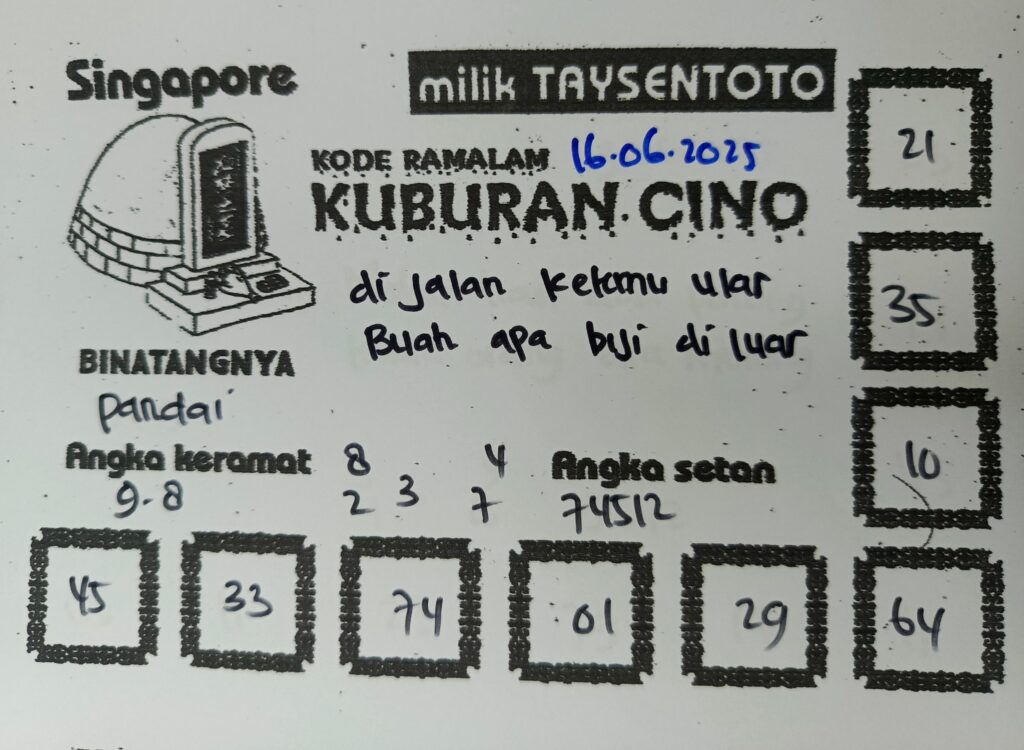 Singapore
milik TAYSENTOTO
KODE RAMALAM 16.06.2025
KUBURAN CINO
di jalan ketemu ular
Buah apa biji di luar
BINATANGNYA
pandai
Angka keramat
9.8
8 4
2 3 7
Angka setan
74512
21
35
10
45 33 74 01 29 64